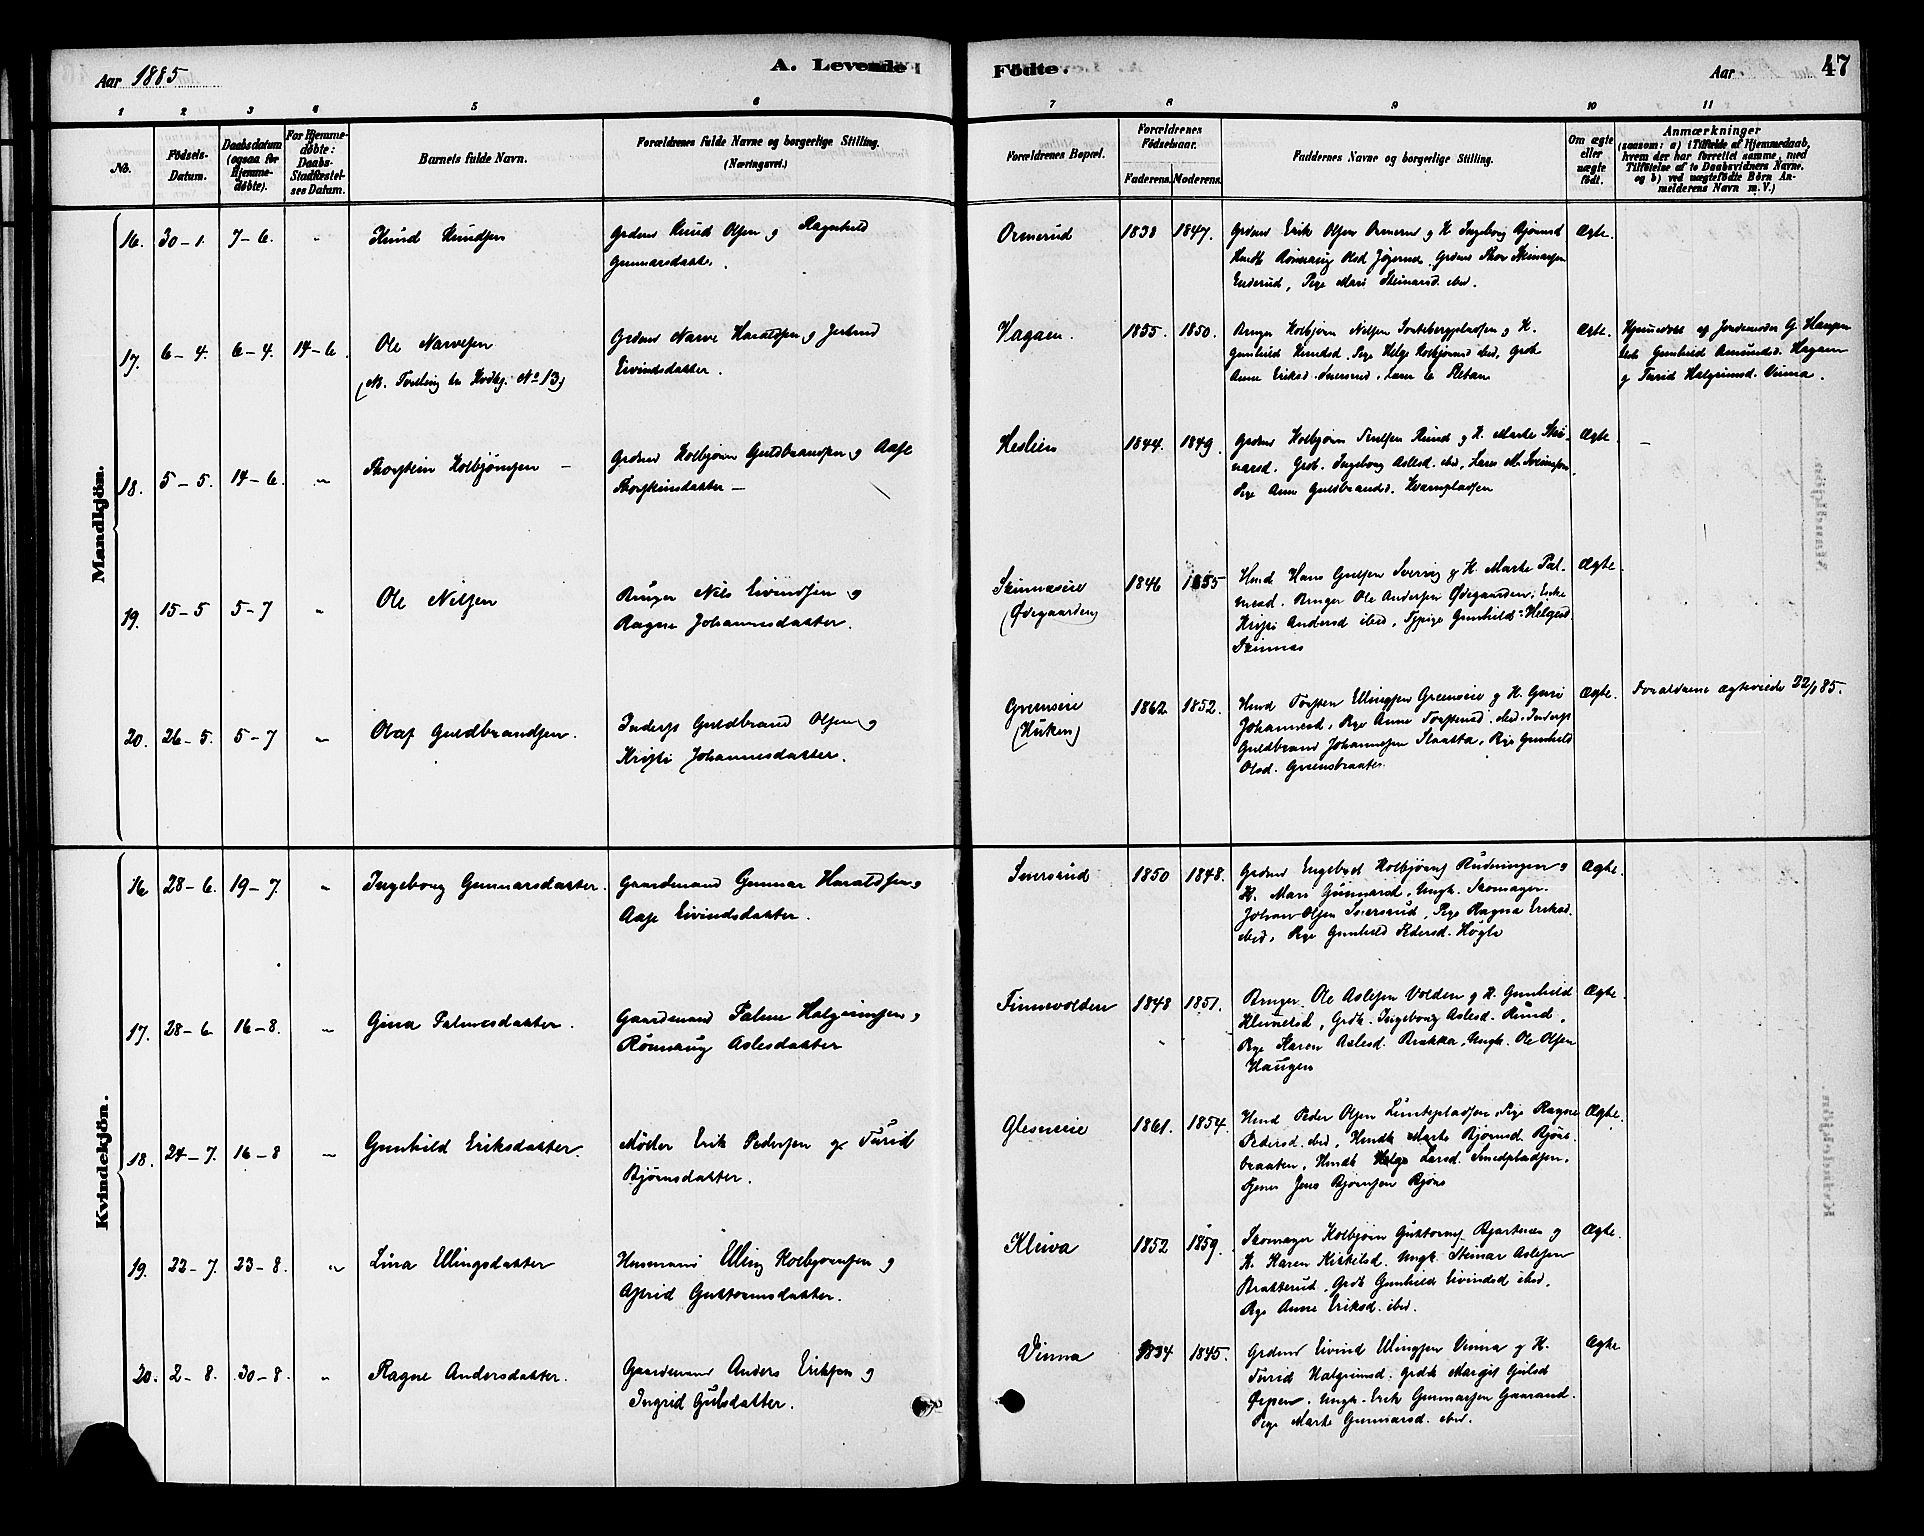 Aar 1885
A. Levende
Födte.
Aar
47
1 2 3 4 5 6 7 8 9 10 11
No.
Födsels-Datum.
Daabsdatum (ogsaa for Hjemmedöbte).
For Hjemmedöbte: Daabs-Stadfæstelses Datum.
Barnets fulde Navn.
Forældrenes fulde Navne og borgerlige Stilling. (Næringsvei.)
Forældrenes Bopæl.
Forældrenes Födselsaar.
Faderens. Moderens.
Faddernes Navne og borgerlige Stilling.
Om ægte eller uægte födt.
Anmærkninger
(saasom: a) i Tilfælde af Hjemmedaab, hvem der har forrettet samme, med Tilföielse af to Daabsvidners Navne. og b) ved uægtefödte Börn Anmelderens Navn m. V.)
Mandkjön.
16. 30-1. 7-6. " Knud Knudsen
Grdmd Knud Olsen og Ragnhild
Gunnarsdatter.
Ormerud 1838 1847.
Grdmd Erik Olsen Ormerud og K. Ingeborg Bjørnsd
Ægte.
17. 6-4. 6-4. 14-6. Ole Narvesen
(NB. Tvilling til Kvdkj. No 13)
Grdmd Narve Haraldsen og Jertrud
Eivindsdatter.
Hagaen. 1855. 1850.
Gunhild Knudsd. Pige Helge Kolbjørnsd. ibid, Grdk
Ægte.
Hjemmedøbt af Jordemoder G. Haugen
Test Gunhild Amundsd. Hagaen
og Turid Halgrimsd. Vinna.
18. 5-5. 14-6. " Thorstein Kolbjørnsen -
Grdmd Kolbjørn Guldbrandsen og Aase
Thorsteinsdatter -
Heslien 1844. 1849.
Pige Anne Guldbrandsd. Kvarnpladsen
Ægte. -
19. 15-5 5-7 " Ole Nilsen
Bruger Nils Eivindsen og
Ragne Johannesdatter.
Skinnæseie
(Ødegaarden)
1846 1855
Hmd Hans Gulsen Sverrig og K. Marte Pal-
mesd. Bruger Ole Andersen Ødegaarden, Enke
Kristi Andersd ibid, Tjpige Gunhild Helgesd.
Skinnæs
Ægte.
20. 26-5. 5-7 " Olaf Guldbrandsen.
Inderst Guldbrand Olsen og
Kristi Johannesdatter.
Greenseie
(Huken)
1862 1852.
Hmd Torsten Ellingsen Greenseie og K. Guri
Johannesd, Pige Anne Torstensd. ibid. Inderst
Guldbrand Johannesen Slaatta, Pige Gunhild
Olsd. Greensbraaten.
Ægte.
Forældrene ægteviede 22/ 85.
Kvindekjön.
16 28-6. 19-7. " Ingeborg Gunnarsdatter.
Gaardmand Gunnar Haraldsen og
Aase Eivindsdatter.
Sevresrud 1850 1848.
Grdmd Engebret Kolbjørns. Rudningen og
K. Mari Gunnarsd, Ungk. Skomager
Johan Olsen Seversrud, Pige Ragna Eriksd.
ibid, Pige Gunhild Pedersd. Høgle
Ægte.
17. 28-6 16-8. " Gina Palmesdatter.
Gaardmand Palme Halgrimsen og
Rønnaug Aslesdatter
Finnevolden 1848 1851.
Bruger Ole Aslesen Volden og K. Gunhild
Klemetsd, Grdk. Ingeborg Aslesd. Rund,
Pige Karen Aslesd. Brakka, Ungk. Ole Olsen
Haugen
Ægte.
18. 24-7. 16-8 " Gunhild Eriksdatter.
Møller Erik Pedersen og Turid
Bjørnsdatter.
Glesneeie 1861. 1854.
Hmd Peder Olsen Linsetpladsen, Pige Ragne
Pedersd. ibid, Hmdk Marte Bjørnsd. Bjøre-
braaten, Hmdk Helge Larsd. Smedpladsen,
Tjener Jens Bjørnsen Bjøre
Ægte.
19. 22-7. 23-8. " Lina Ellingsdatter
Husmand Elling Kolbjørnsen og
Astrid Guttormsdatter.
Kleiva 1852 1859.
Skomager Kolbjørn Guttorms. Bjertnæs og
K. Karen Kittelsd. Ungk. Steinar Aslesen
Brakkerud, Grdk Gunhild Eivindsd ibid,
Pige Anne Eriksd. ibid.
Ægte.
20. 2-8. 30-8. " Ragne Andersdatter.
Gaardmand Anders Eriksen og
Ingrid Gulsdatter.
Vinna 1834 1845.
Grdmd Eivind Ellingsen Vinna og K.
Turid Halgrimsd. Grdk Margit Gulsd
Ørpen. Ungk. Erik Gunnarsen Gaarand.
Pige Marte Gunnarsd. ibid.
Ægte